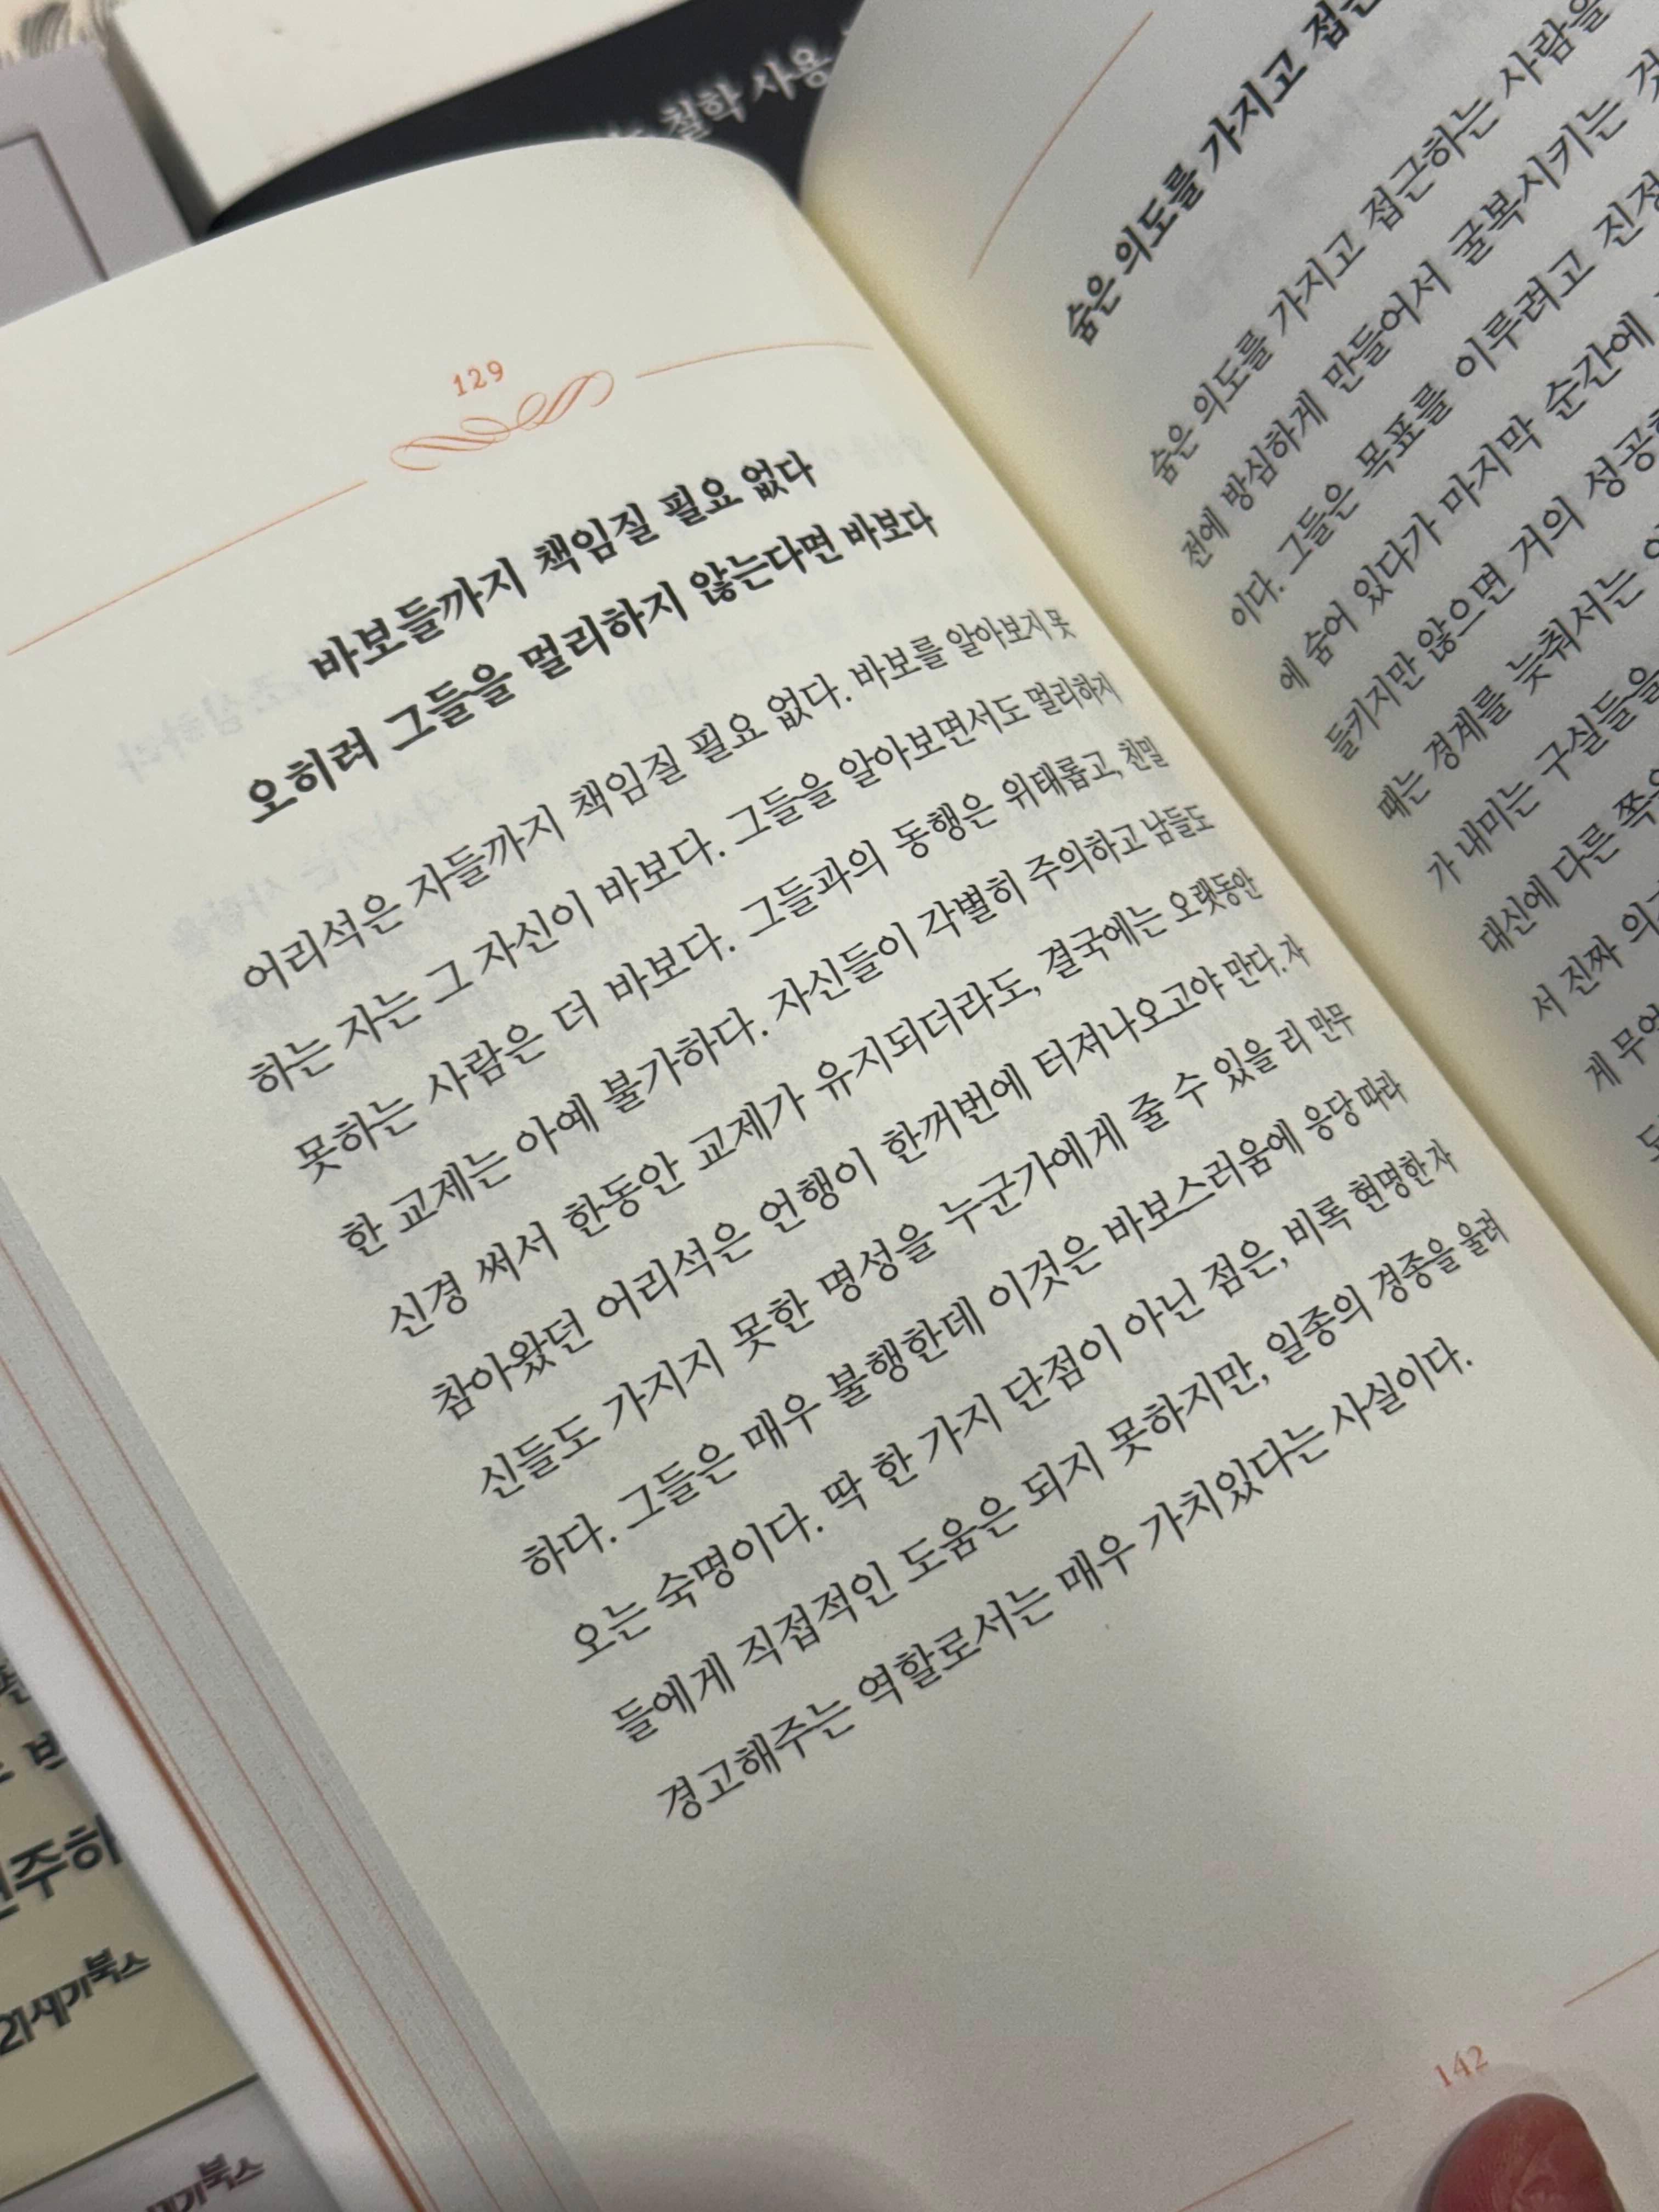 철학 사용
129
바보들까지 책임질 필요 없다
오히려 그들을 멀리하지 않는다면 바보다
어리석은 자들까지 책임질 필요 없다. 바보를 알아보지 못
하는 자는 그 자신이 바보다. 그들을 알아보면서도 멀리하지
못하는 사람은 더 바보다. 그들과의 동행은 위태롭고, 친밀
한 교제는 아예 불가하다. 자신들이 각별히 주의하고 남들도
신경 써서 한동안 교제가 유지되더라도, 결국에는 오랫동안
참아왔던 어리석은 언행이 한꺼번에 터져나오고야 만다. 자
신들도 가지지 못한 명성을 누군가에게 줄 수 있을 리 만무
하다. 그들은 매우 불행한데 이것은 바보스러움에 응당 따라
오는 숙명이다. 딱 한 가지 단점이 아닌 점은, 비록 현명한 자
들에게 직접적인 도움은 되지 못하지만, 일종의 경종을 울려
경고해주는 역할로서는 매우 가치있다는 사실이다.
142
숨은 의도를 가지고
숨은 의도를 가지고 접근하는 사람을
전에 방심하게 만들어서 굴복시키는
이다. 그들은 목표를 이루려고
에 숨어 있다가 마지막 순간에
들키지만 않으면 거의
때는 경계를 늦춰서는
가 내미는 구실들을
대신에 다른
서 진짜
게
21세기북스